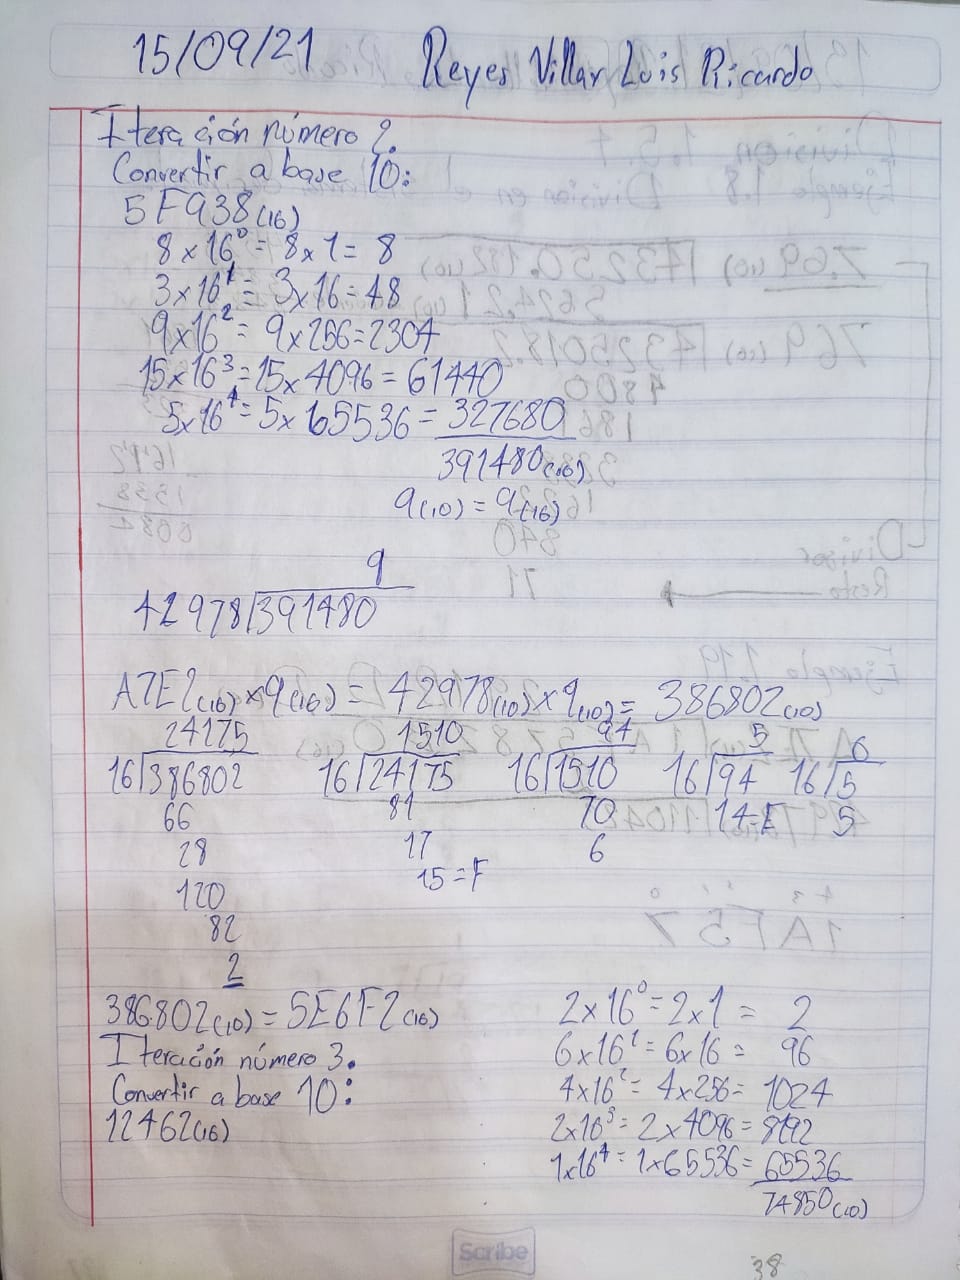 15/09/21 Reyes Villar Luis Ricardo
Iteración número 2.
Convertir a base 10:
5F938(16)
8 x 16⁰ = 8 x 1 = 8
3 x 16¹ = 3 x 16 = 48
9 x 16² = 9 x 256 = 2304
15 x 16³ = 15 x 4096 = 61440
5 x 16⁴ = 5 x 65536 = 327680
391480(10)
9(10) = 9(16)
9
42978 391480
A7E2(16) x 9(16) = 42978(10) x 9(10) = 386802(10)
24175 1510 94 5 0
16 386802 16 24175 16 1510 16 94 16 5
66 81 70 14=E 5
28 17 6
120 15=F
82
2
386802(10) = 5E6F2(16)
Iteración número 3.
Convertir a base 10:
12462(16)
2 x 16⁰ = 2 x 1 = 2
6 x 16¹ = 6 x 16 = 96
4 x 16² = 4 x 256 = 1024
2 x 16³ = 2 x 4096 = 8192
1 x 16⁴ = 1 x 65536 = 65536
74850(10)
Scribe
38